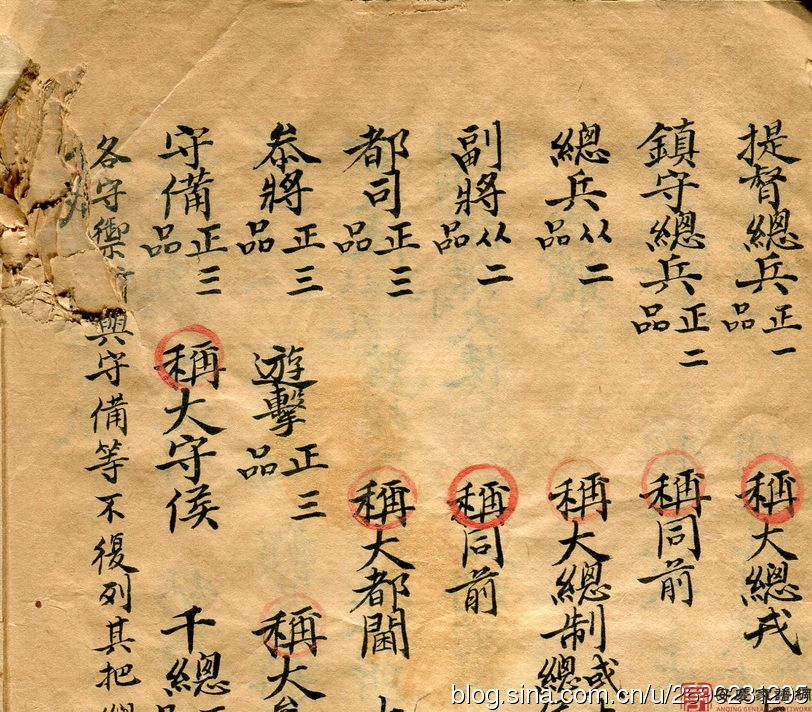 提督總兵正一品 稱大總戎
鎮守總兵正二品 稱同前
總兵从二品 稱大總制或總
副將从二品 稱同前
都司正三品 稱大都閫
叅將正三品 遊擊正三品 稱大
守備正三品 稱大守侯 千總
各守禦 與守備等不復列其把
blog.sina.com.cn/u/2596231205